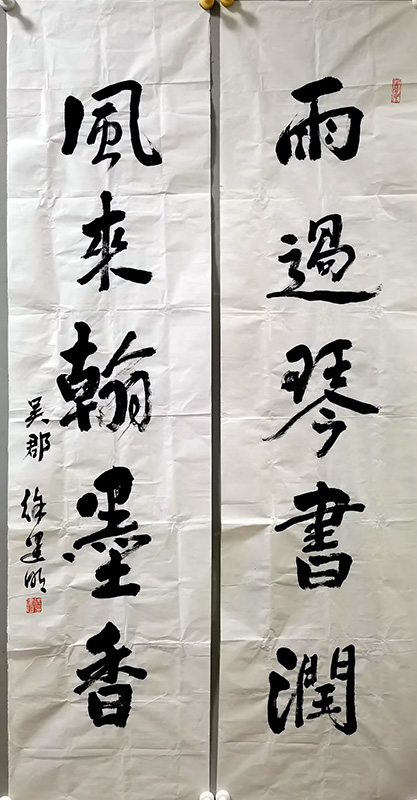 雨過琴書潤
風來翰墨香
吳郡 徐建明